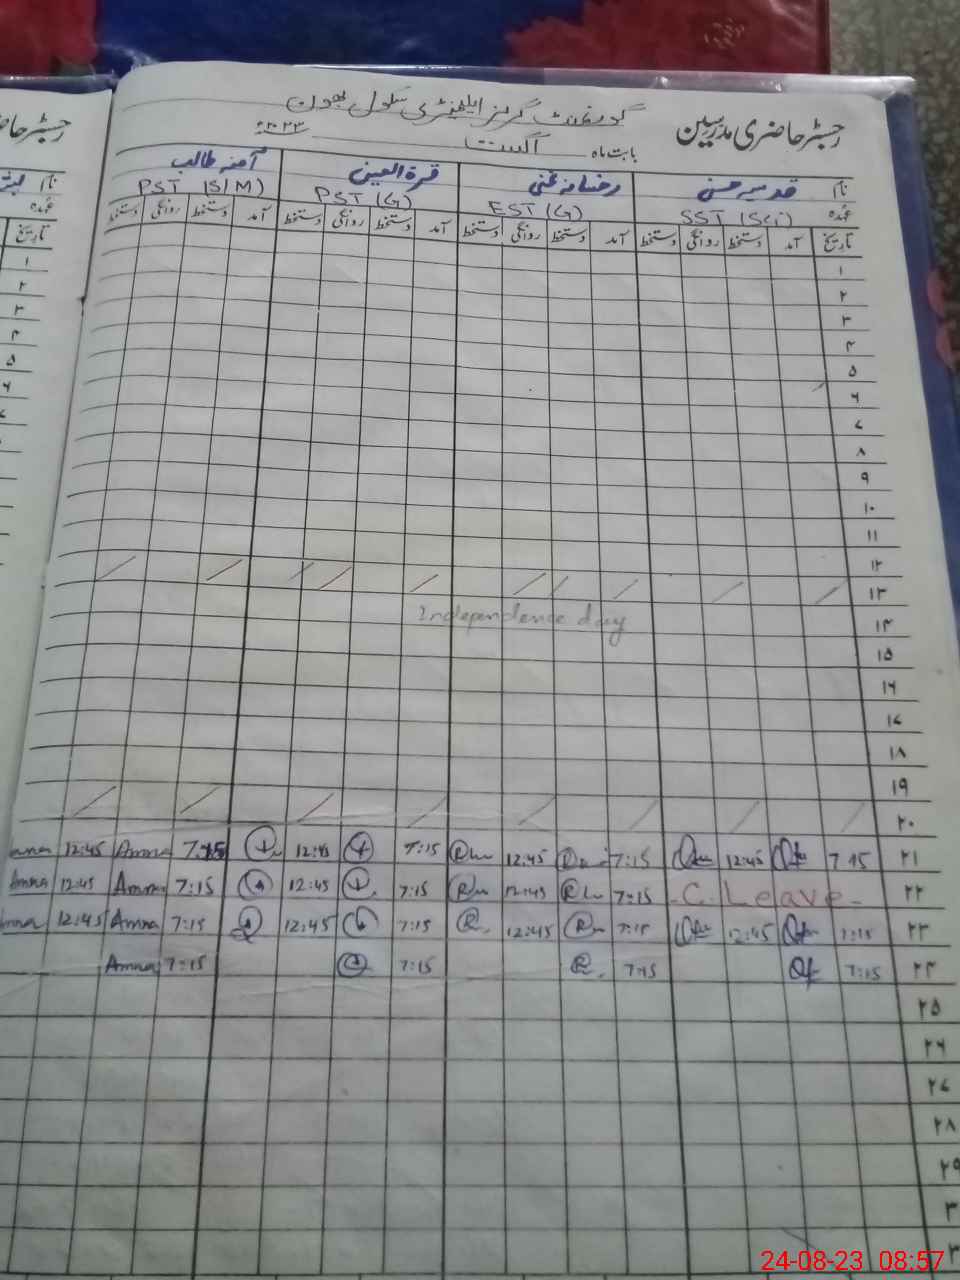 گورنمنٹ گرلز ایلیمنٹری سکول بھون
رجسٹر حاضری مدرسین
بابت ماہ اگست ۲۰۲۳
نام قدسیہ حسنی رخسانہ غنی قرۃ العینی آمنہ طالب
عہدہ SST (Sci) EST (G) PST (G) PST (S/M)
تاریخ آمد دستخط روانگی دستخط آمد دستخط روانگی دستخط آمد دستخط روانگی دستخط آمد دستخط روانگی دستخط
۱
۲
۳
۴
۵
۶
۷
۸
۹
۱۰
۱۱
۱۲
۱۳
۱۴ Independence day
۱۵
۱۶
۱۷
۱۸
۱۹
۲۰
۲۱ 7:15 12:45 7:15 12:45 7:15 12:45 7:15 Amna 12:45
۲۲ C. Leave 7:15 12:45 7:15 12:45 7:15 Amna 12:45 Amna
۲۳ 7:15 12:45 7:15 12:45 7:15 12:45 7:15 Amna 12:45 Amna
۲۴ 7:15 7:15 7:15 7:15 Amna
۲۵
۲۶
۲۷
۲۸
۲۹
۳
۳
رجسٹر
نام
عہدہ
تاریخ
۱
۲
۳
۴
۵
۶
24-08-23 08:57